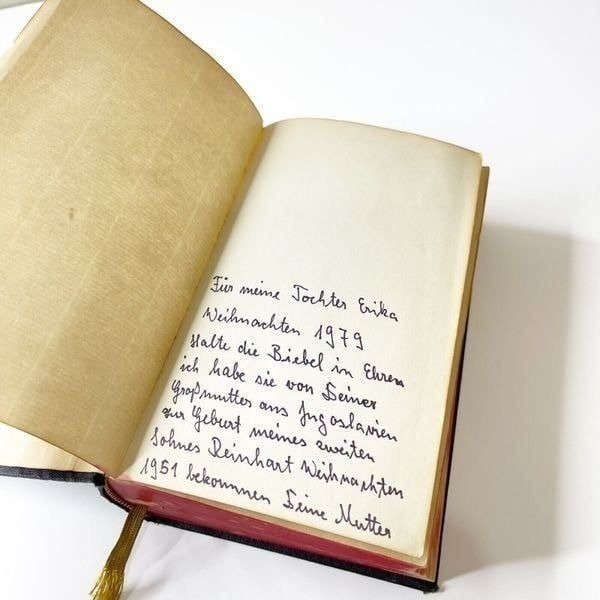 Für meine Tochter Erika
Weihnachten 1979
Halte die Biebel in Ehren
ich habe sie von Deiner
Großmutter aus Jugoslavien
zur Geburt meines zweiten
Sohnes Reinhart Weihnachten
1951 bekommen Deine Mutter